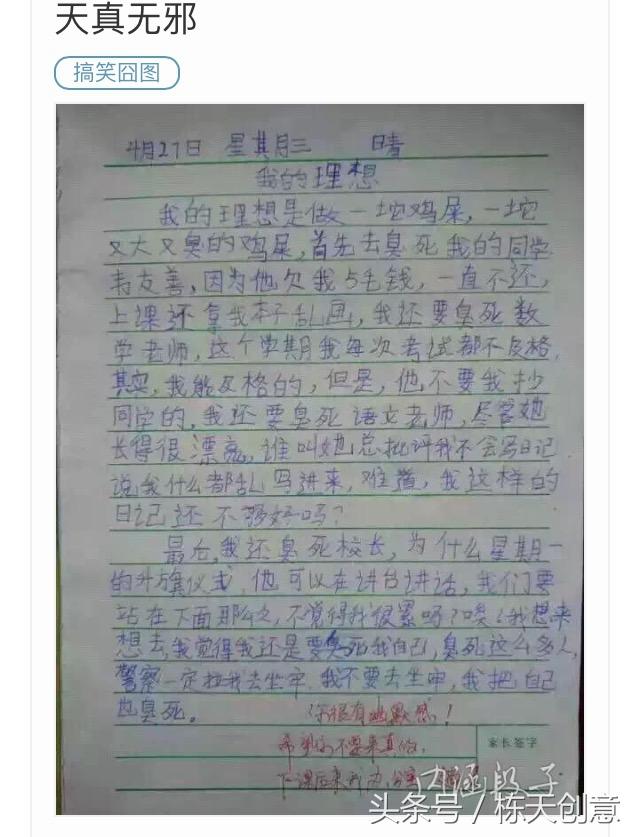 天真无邪
搞笑囧图
4月27日 星其月三 晴
我的理想
我的理想是做一坨鸡屎,一坨
又大又臭的鸡屎,首先去臭死我的同学
韦友善,因为他欠我5毛钱,一直不还,
上课还拿我本子乱画,我还要臭死数
学老师,这个学期我每次考试都不及格,
其实,我能及格的,但是,他不要我抄
同学的,我还要臭死语文老师,尽管她
长得很漂亮,谁叫她总批评我不会写日记
说我什么都乱写进来,难道,我这样的
日记还不够好吗?
最后,我还臭死校长,为什么星期一
的升旗仪式,他可以在讲台讲话,我们要
站在下面那么久,不觉得我很累吗?唉!我想来
想去,我觉得我还是要臭死我自己,臭死这么多人,
警察一定拉我去坐牢,我不要去坐牢,我把自己
也臭死。 你很有幽默感!
希望你不要来真的,
家长签字
下课后来我办公室
内涵段子
头条号 / 栋天创意